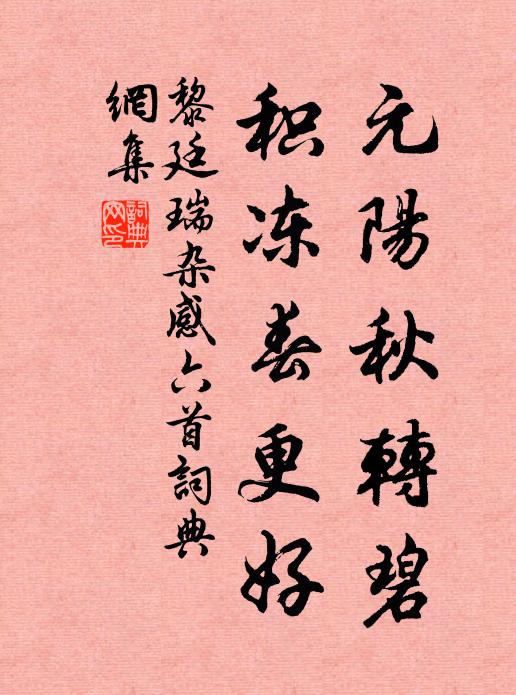 元陽秋轉碧
积冻春更好
黎廷瑞杂感六首詞典
網集
詞典
网印